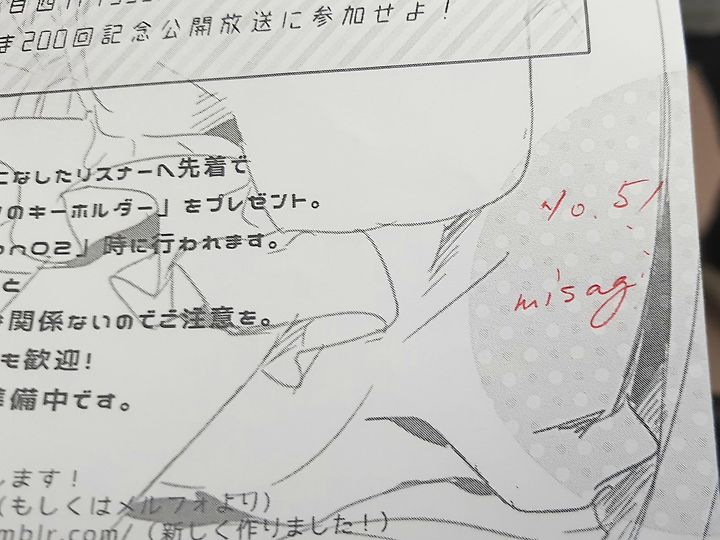 ま200回記念公開放送に参加せよ!
こなしたリスナーへ先着で
のキーホルダー」をプレゼント。
no2」時に行われます。
と
関係ないのでご注意を。
も歓迎!
準備中です。
します!
(もしくはメルフォより)
mblr.com/(新しく作りました!)
No.51
misagi